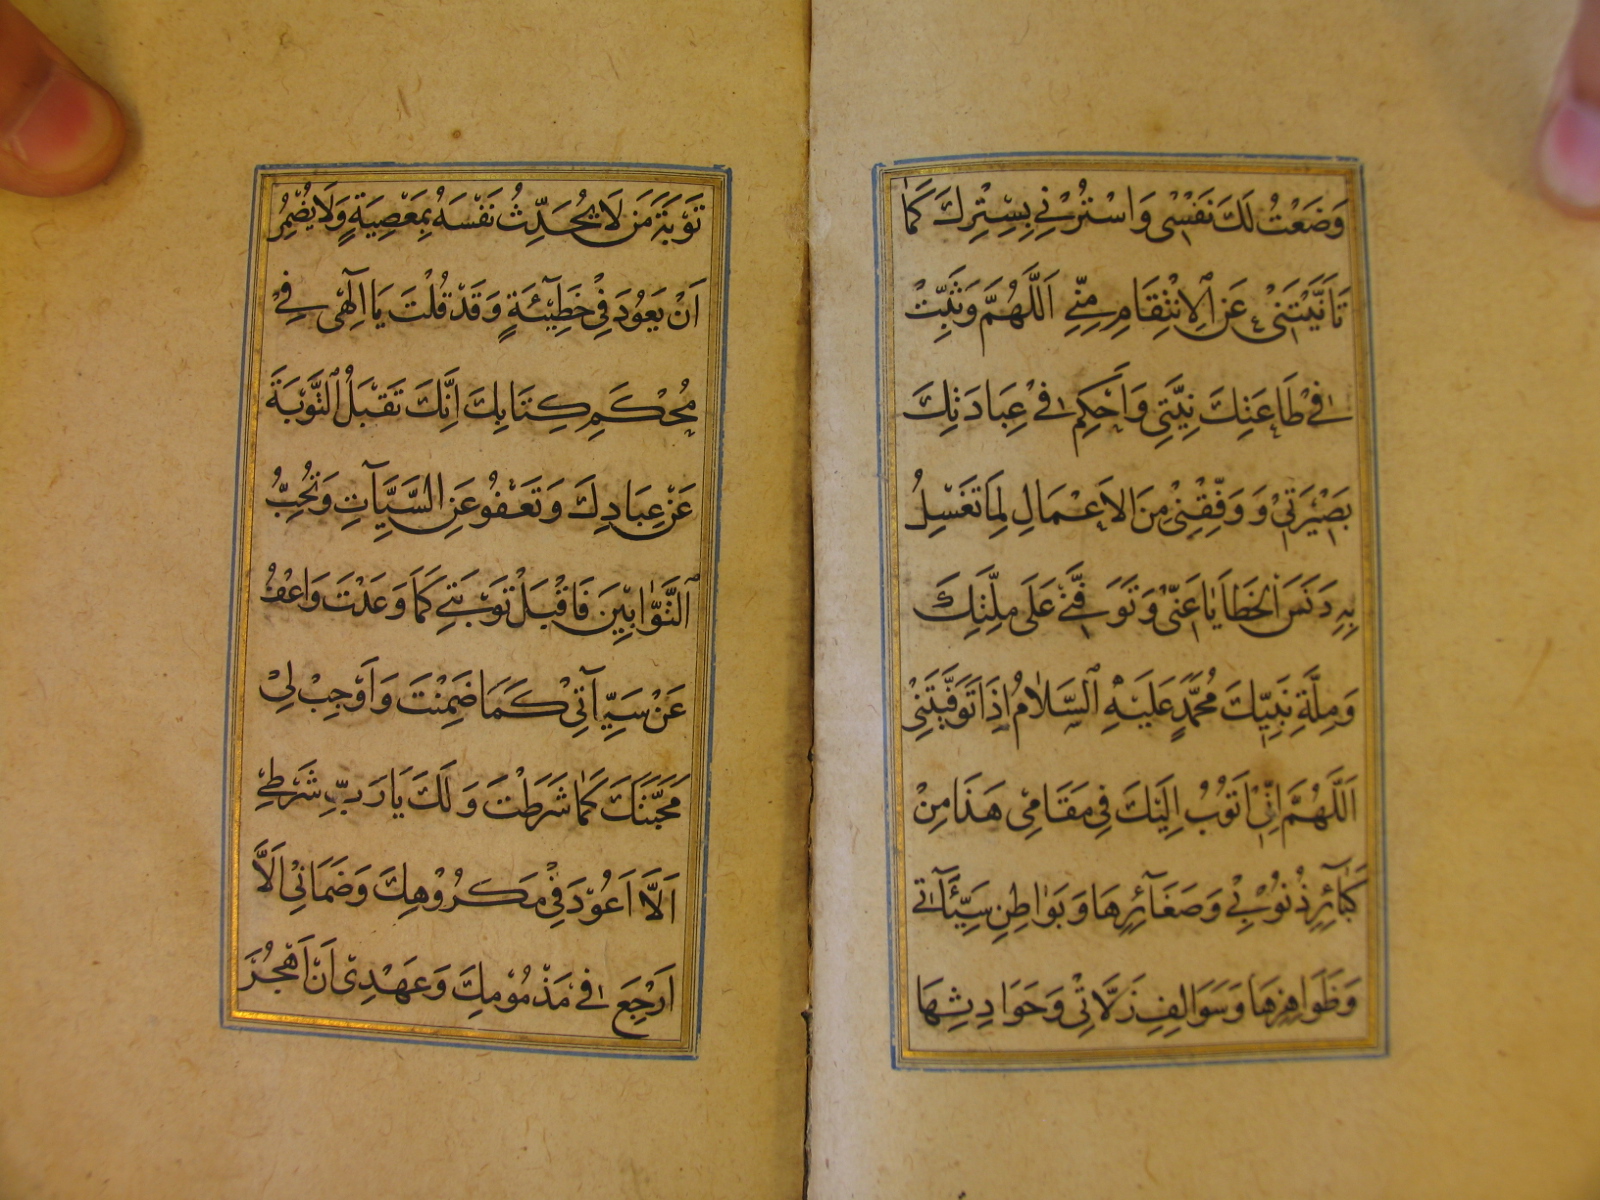 وَضَعْتُ لَكَ نَفْسِى وَاسْتُرْنِي بِسِتْرِكَ كَمَا
تَاَنَّيْتَنِىْ عَنِ الْاِنْتِقَامِ مِنِّي اَللّٰهُمَّ وَثَبِّتْ
فِى طَاعَتِكَ نِيَّتِي وَاَحْكِمْ فِى عِبَادَتِكَ
بَصِيْرَتِىْ وَ وَفِّقْنِىْ مِنَ الْاَعْمَالِ لِمَا تَغْسِلُ
بِهِ دَنَسَ الْخَطَايَا عَنِّىْ وَتَوَفَّنِي عَلَى مِلَّتِكَ
وَمِلَّةِ نَبِيِّكَ مُحَمَّدٍ عَلَيْهِ السَّلَامُ اِذَا تَوَفَّيْتَنِىْ
اَللّٰهُمَّ اِنِّىْ اَتُوْبُ اِلَيْكَ فِي مَقَامِىْ هَذَا مِنْ
كَبَآئِرِ ذُنُوْبِيْ وَصَغَآئِرِهَا وَبَوَاطِنِ سَيِّئَآتِي
وَظَوَاهِرِهَا وَسَوَالِفِ زَلَّاتِىْ وَحَوَادِثِهَا
تَوْبَةَ مَنْ لَا يُحَدِّثُ نَفْسَهُ بِمَعْصِيَةٍ وَلَا يُضْمِرُ
اَنْ يَعُوْدَ فِيْ خَطِيْئَةٍ وَقَدْ قُلْتَ يَا اِلٰهِىْ فِيْ
مُحْكَمِ كِتَابِكَ اِنَّكَ تَقْبَلُ التَّوْبَةَ
عَنْ عِبَادِكَ وَتَعْفُو عَنِ السَّيِّآتِ وَتُحِبُّ
التَّوَّابِيْنَ فَاقْبَلْ تَوْبَتِي كَمَا وَعَدْتَ وَاعْفُ
عَنْ سَيِّآتِىْ كَمَا ضَمِنْتَ وَاَوْجِبْ لِىْ
مَحَبَّتَكَ كَمَا شَرَطْتَ وَلَكَ يَا رَبِّ شَرْطِي
اَلَّا اَعُوْدَ فِيْ مَكْرُوْهِكَ وَضَمَانِىْ اَلَّا
اَرْجِعَ فِى مَذْمُوْمِكَ وَعَهْدِىْ اَنْ اَهْجُرَ